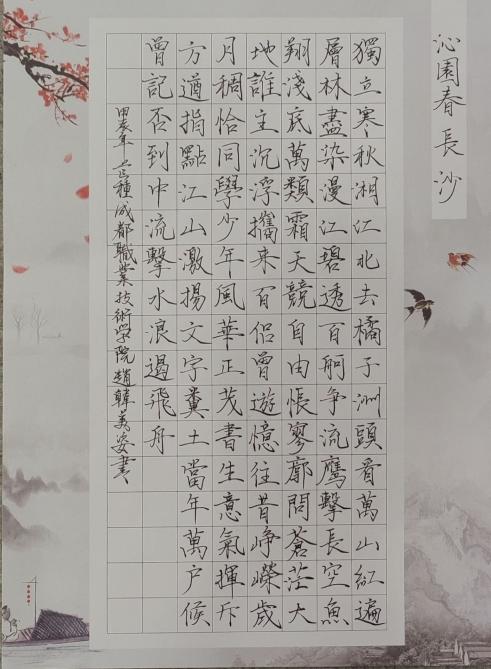 沁園春長沙
獨立寒秋湘江北去橘子洲頭看萬山紅遍
層林盡染漫江碧透百舸争流鹰擊長空魚
翔淺底萬類霜天競自由悵寥廓問蒼茫大
地誰主沉浮攜来百侣曾遊憶往昔崢嶸歲
月稠恰同學少年風華正茂書生意氣揮斥
方遒指點江山激揚文字糞土當年萬户候
曾記否到中流擊水浪遏飛舟
甲辰年芒種成都職業技術學院趙韓美姿書